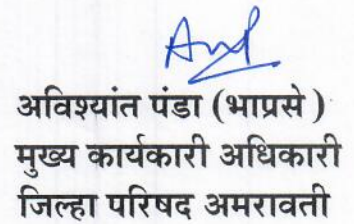 अविश्यांत पंडा (भाप्रसे)
मुख्य कार्यकारी अधिकारी
जिल्हा परिषद अमरावती